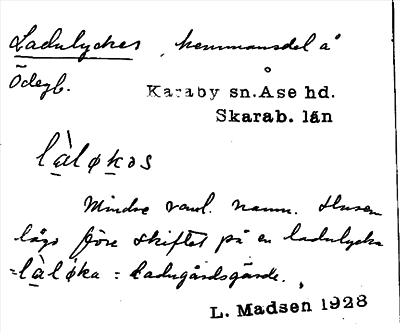 Ladulyckes, hemmansdel å
Ödegb.
Karaby sn. Åse hd.
Skarab. län
là̱løḵəs
Mindre vanl. namn. Husen
lågo före skiftet på en ladulycka
= là̱løka = ladugårdsgärde.
L. Madsen 1928